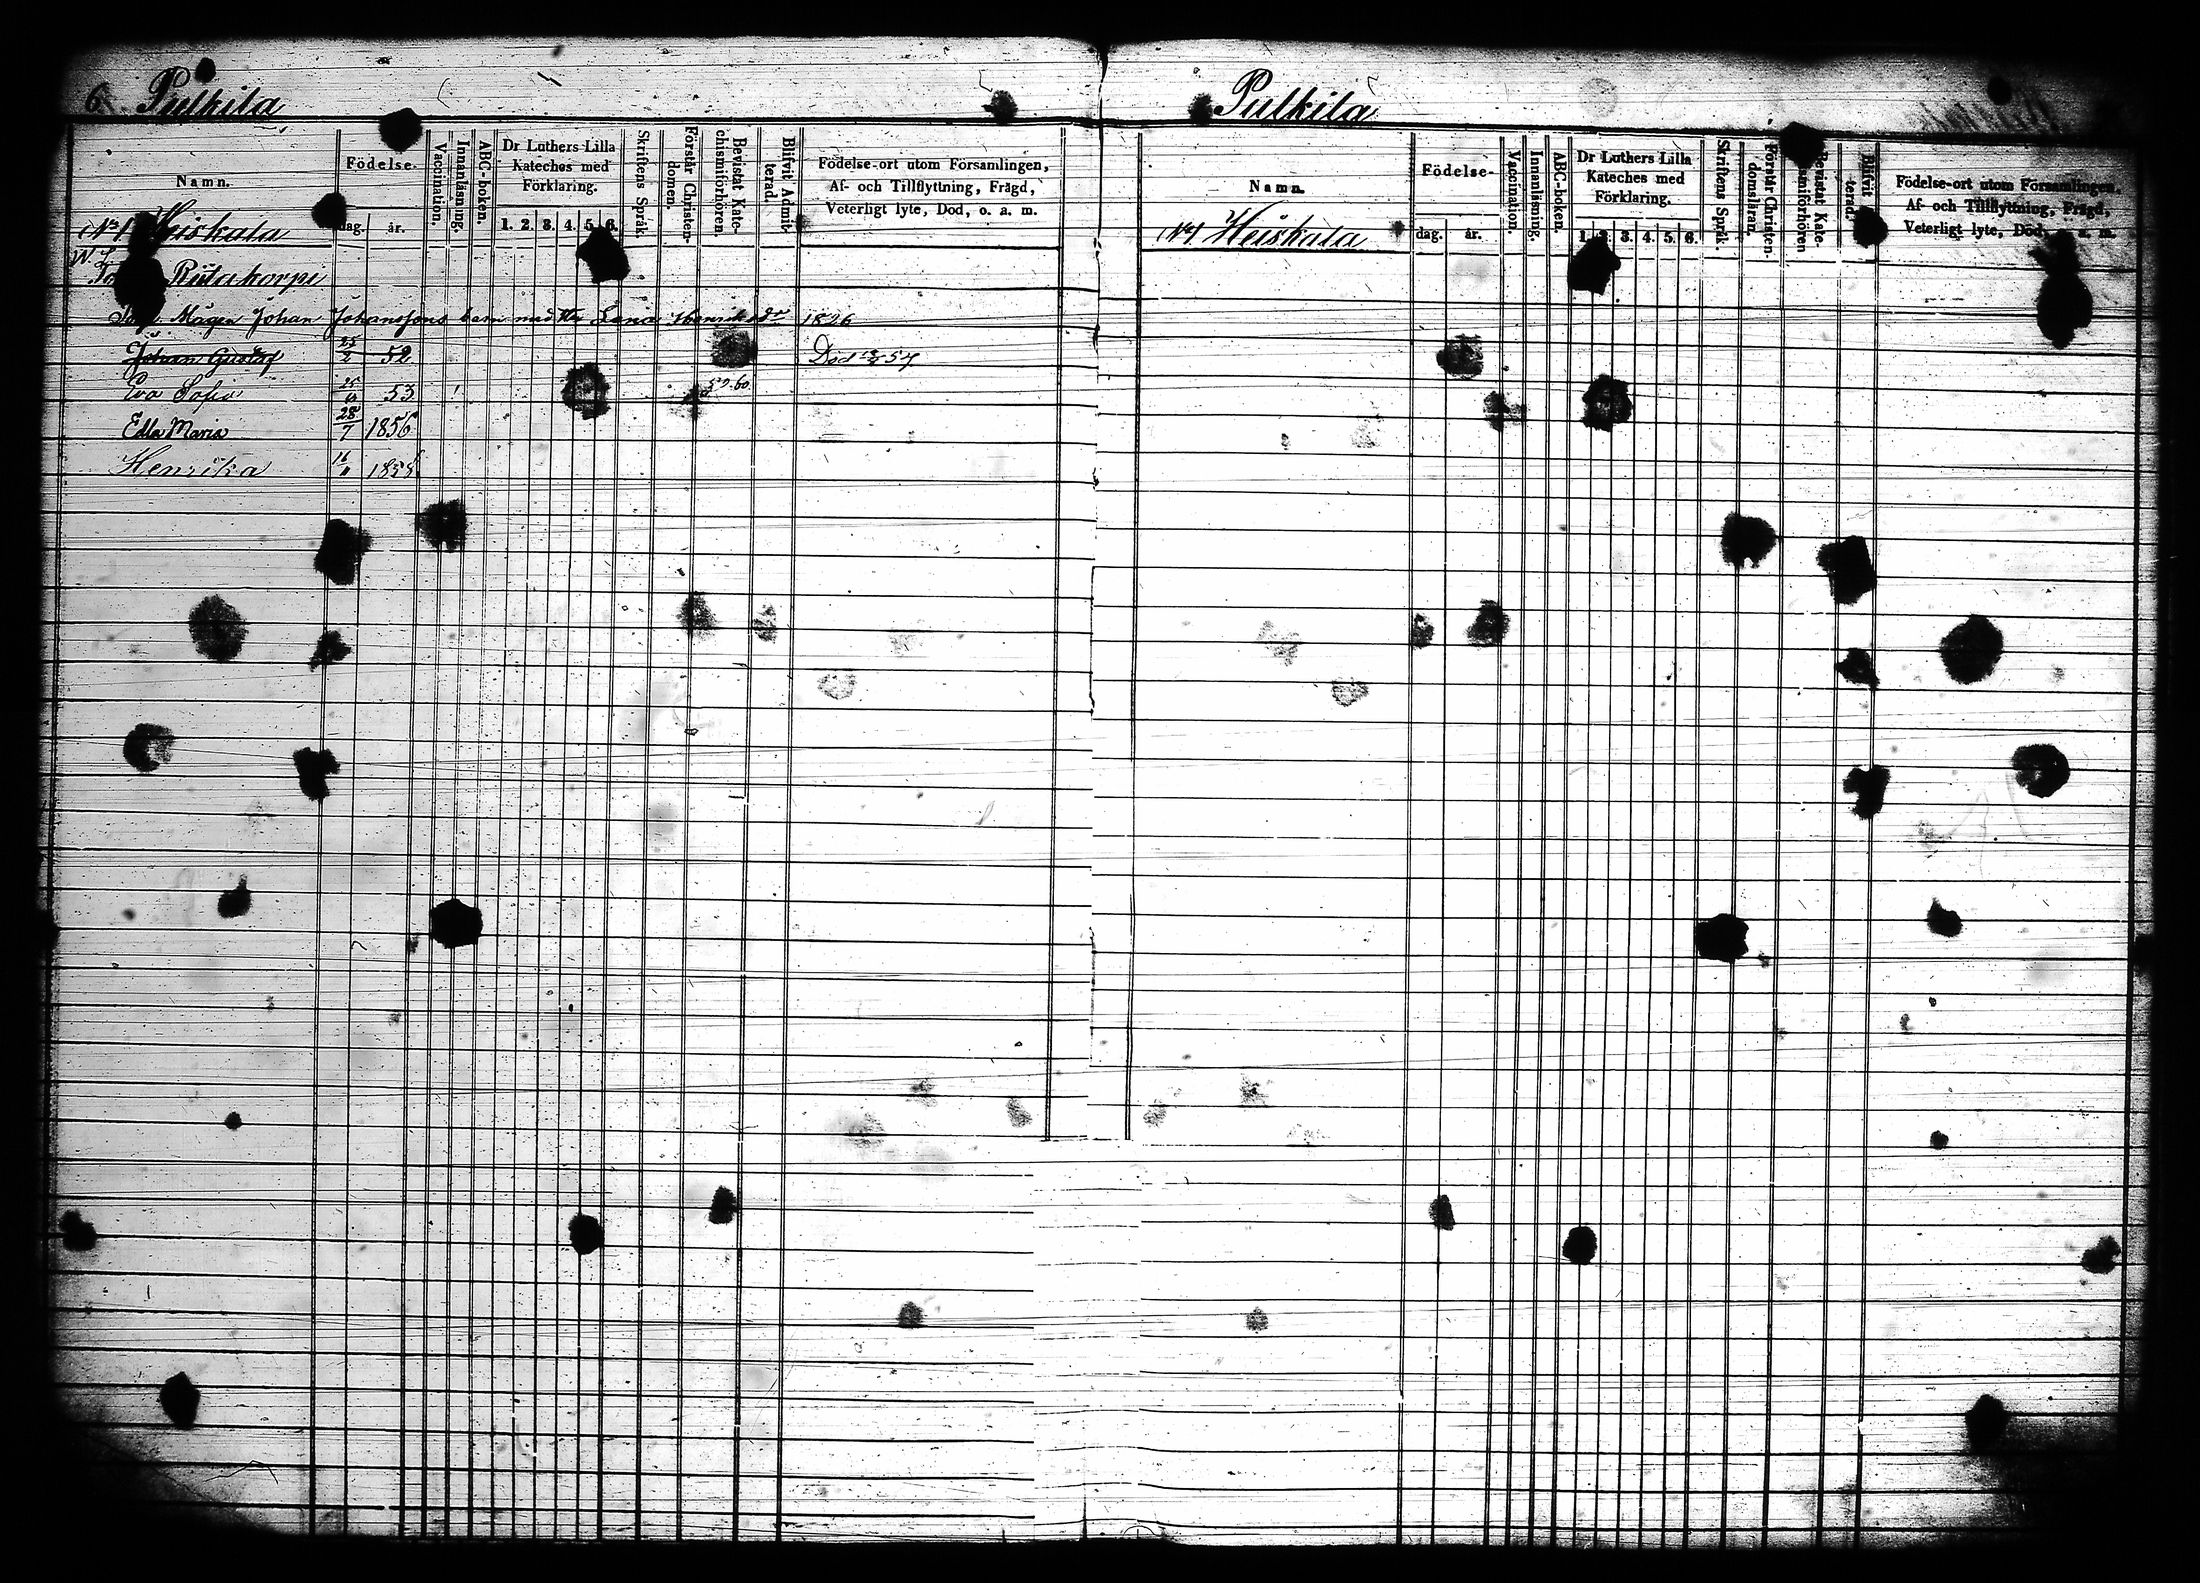 6. Pulkila
Namn.
Födelse-
dag. år.
Vaccination.
Innanläsning.
ABC-boken.
Dr Luthers Lilla
Kateches med
Förklaring.
1. 2. 3. 4. 5. 6.
Skriftens Språk.
Förstår Christen-
domen.
Bevistat Kate-
chismiförhören.
Blifvit Admit-
terad.
Födelse-ort utom Församlingen,
Af- och Tillflyttning, Frägd,
Veterligt lyte, Död, o. a. m.
No 1. Heiskala
Riitakorpi
Mågen Johan Johanssons barn med Lena 1826
Johan Gustaf 25/2 52 Död 57
Eva Sofia 25/12 53 59.60
Edla Maria 28/7 1856
Henrika 16 1858
Pulkila
Namn.
No 1 Heiskala
Födelse-
dag. år.
Vaccination.
Innanläsning.
ABC-boken.
Dr Luthers Lilla
Kateches med
Förklaring.
1. 2. 3. 4. 5. 6.
Skriftens Språk.
Förstår Christen-
domsläran.
Bevistat Kate-
smiförhören
Blifvit
terad.
Födelse-ort utom Församlingen,
Af- och Tillflyttning, Frägd,
Veterligt lyte, Död, a. m.